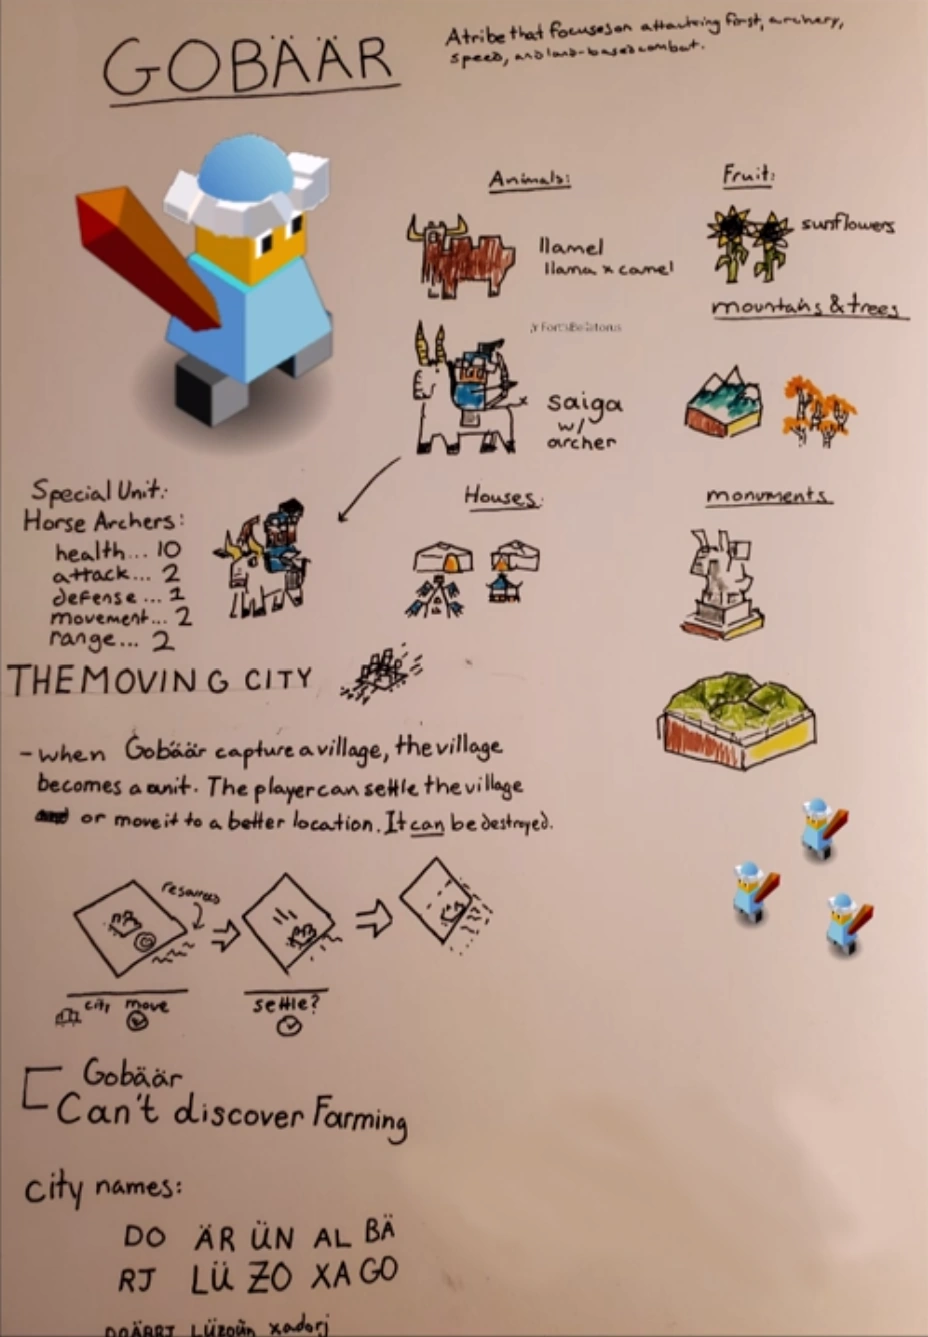 GOBÄÄR
A tribe that focuses on attacking first, archery,
speed, and land-based combat.
Animals:
llamel
llama x camel
saiga
w/
archer
Fruit:
sunflowers
mountains & trees
Special Unit:
Horse Archers:
health... 10
attack... 2
defense... 1
movement... 2
range... 2
Houses:
monuments
THE MOVING CITY
- when Gobäär capture a village, the village
becomes a unit. The player can settle the village
or move it to a better location. It can be destroyed.
resources
city move
settle?
Gobäär
Can't discover Farming
city names:
DO ÄR ÜN AL BÄ
RJ LÜ ZO XA GO
DOÄRRJ LÜZOÜN xadorj